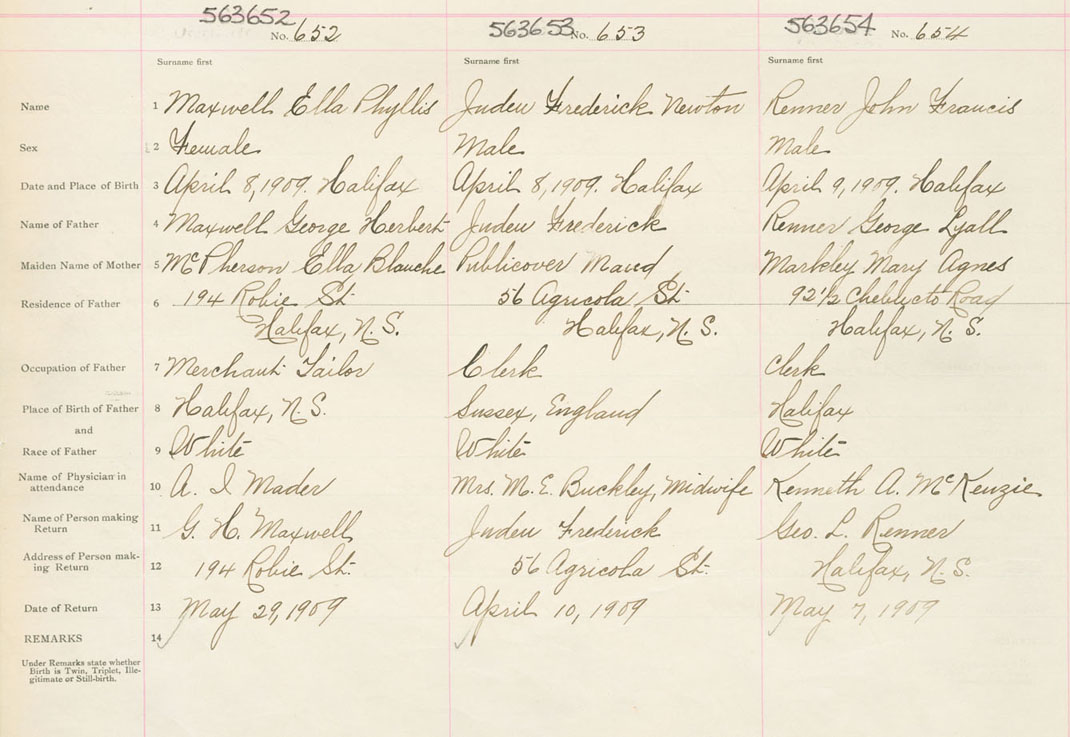 563652 No. 652 563653 No. 653 563654 No. 654
Surname first Surname first Surname first
Name 1 Maxwell Ella Phyllis Judeu Frederick Newton Renner John Francis
Sex 2 Female Male Male
Date and Place of Birth 3 April 8, 1909. Halifax April 8, 1909. Halifax April 9, 1909. Halifax
Name of Father 4 Maxwell George Herbert Judeu Frederick Renner George Lyall
Maiden Name of Mother 5 McPherson Ella Blanche Publicover Maud Markley Mary Agnes
Residence of Father 6 194 Robie St. 56 Agricola St. 92 1/2 Chebucto Road
Halifax, N.S. Halifax, N.S. Halifax, N.S.
Occupation of Father 7 Merchant Tailor Clerk Clerk
Place of Birth of Father 8 Halifax, N.S. Sussex, England Halifax
and
Race of Father 9 White White White
Name of Physician in
attendance 10 A. I Mader Mrs. M. E. Buckley, Midwife Kenneth A. McKenzie
Name of Person making
Return 11 G. H. Maxwell Judeu Frederick Geo. L. Renner
Address of Person mak-
ing Return 12 194 Robie St. 56 Agricola St. Halifax, N.S.
Date of Return 13 May 29, 1909 April 10, 1909 May 7, 1909
REMARKS 14
Under Remarks state whether
Birth is Twin, Triplet, Ille-
gitimate or Still-birth.